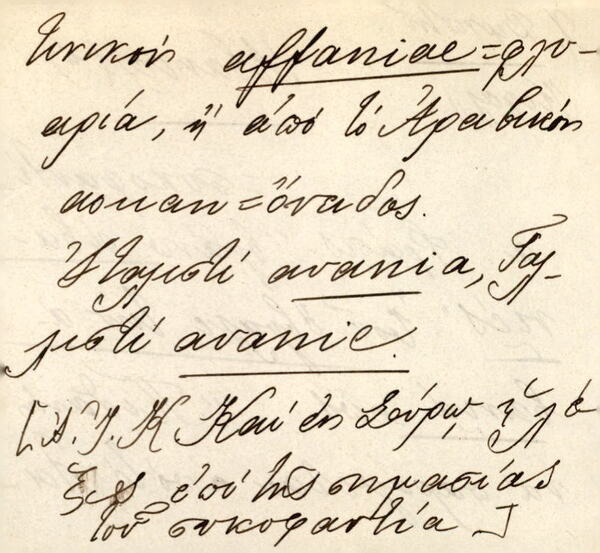 τινικὸν affaniae = φλυ-
αρία, ἢ ἀπὸ τὸ Ἀραβικὸν
= ὄνειδος.
Ἰταλιστὶ avania, Γαλ-
λιστὶ avanie.
[Α. Ι. Κ Καὶ ἐν Σύρῳ, ἡ λέ
ξις ἐπὶ τῆς σημασίας
τοῦ συκοφαντία]